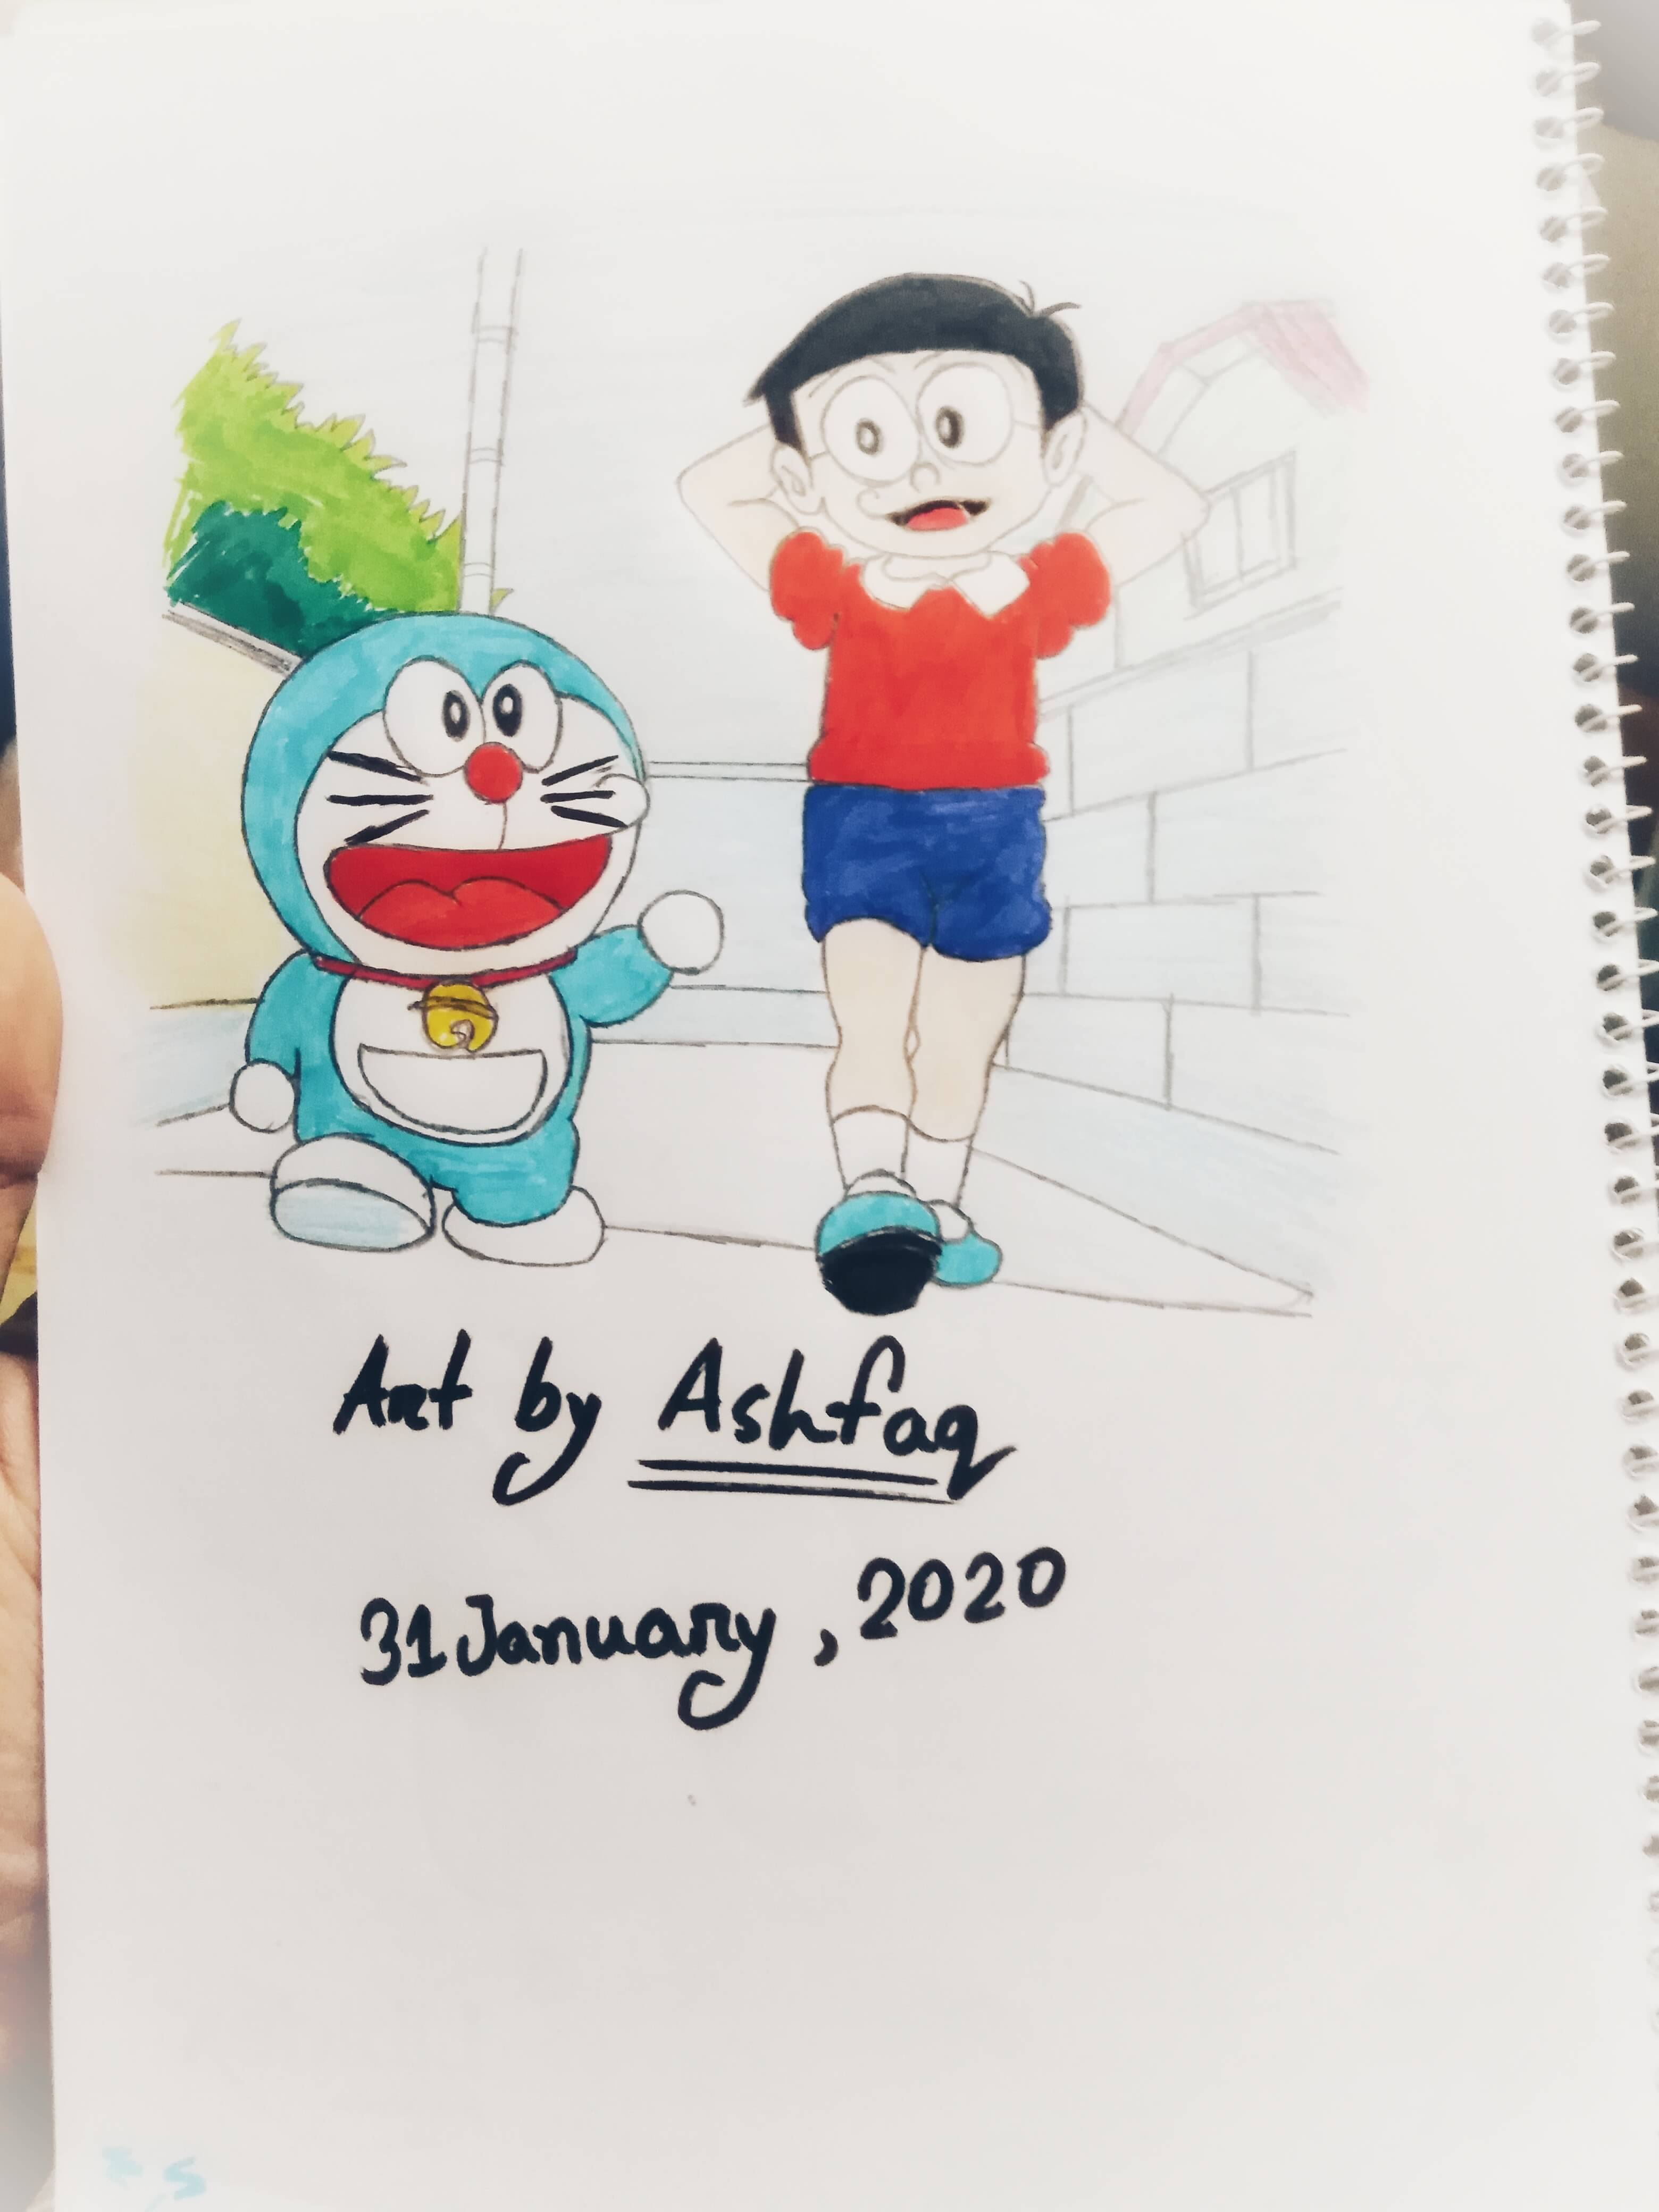 Art by Ashfaq
31 January, 2020